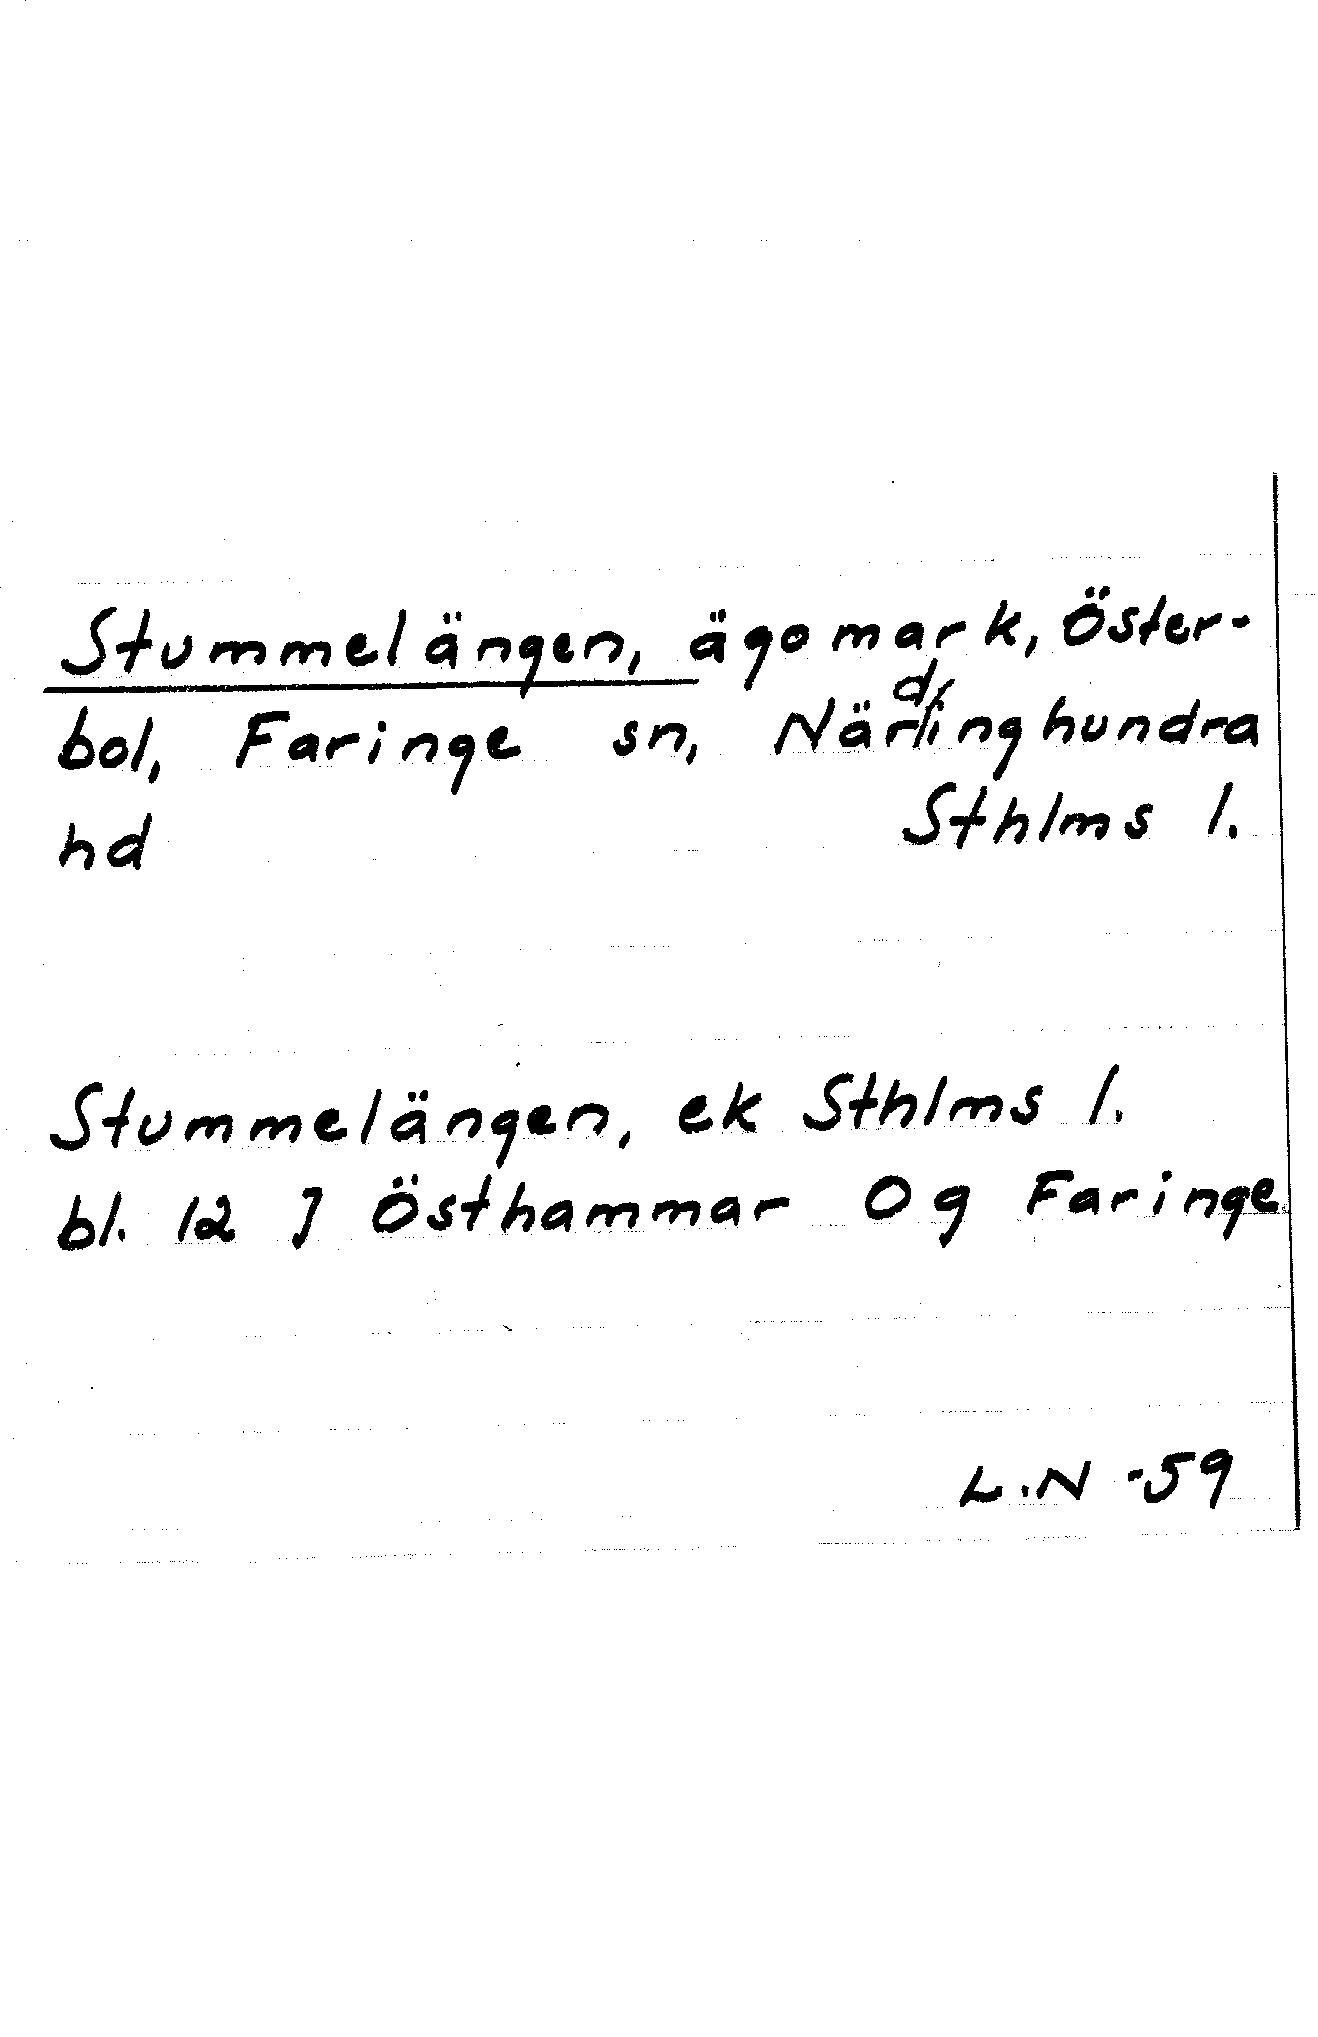 Stummelängen, ägomark, Öster-
bol, Faringe sn, Närdinghundra
hd Sthlms l.
Stummelängen, ek Sthlms l.
bl. 12 J Östhammar Og Faringe
L.N -59